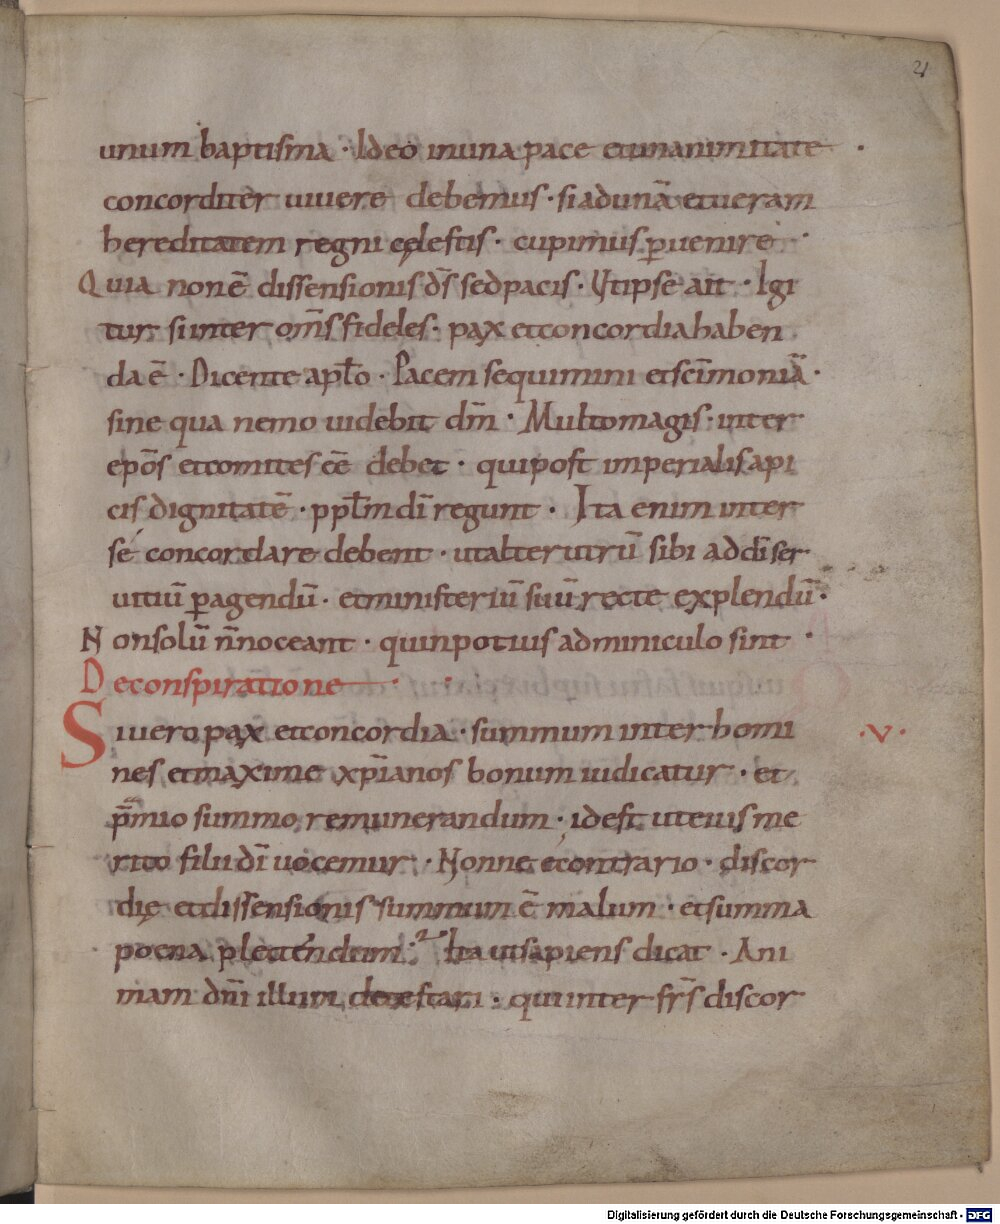 21
unum baptisma · Ideo in una pace et unanimitate ·
concorditer uiuere debemus · si ad unā et ueram
hereditatem regni cęlestis · cupimus ꝑuenire ·
Quia non ē dissensionis d̄s sed pacis · Ut ipse ait · Igi
tur si inter om̄s fideles · pax et concordia haben
da ē · Dicente apl̄o · Pacem sequimini et sc̄imoniā ·
sine qua nemo uidebit dm̄ · Multo magis · inter
ep̄os et comites eē debet · qui post imperialis api
cis dignitatē · ppl̄m dī regunt · Ita enim inter
se concordare debent · ut alter utrū sibi ad dī ser
uitiū ꝑagendū · et ministeriū suū recte explendū ·
Non solū n̄ noceant · quin potius adminiculo sint ·
De conspiratione · ·
Si uero pax et concordia · summum inter homi · V ·
nes et maxime xp̄ianos bonum iudicatur · et
p̄mio summo remunerandum · id est ut eius me
rito filii dī uocemur · Nonne e contrario · discor
dię et dissensionis summum ē malum · et summa
poena plectendum · Ita ut sapiens dicat · Ani
mam dn̄i illum detestari · qui inter fr̄s discor
Digitalisierung gefördert durch die Deutsche Forschungsgemeinschaft - DFG